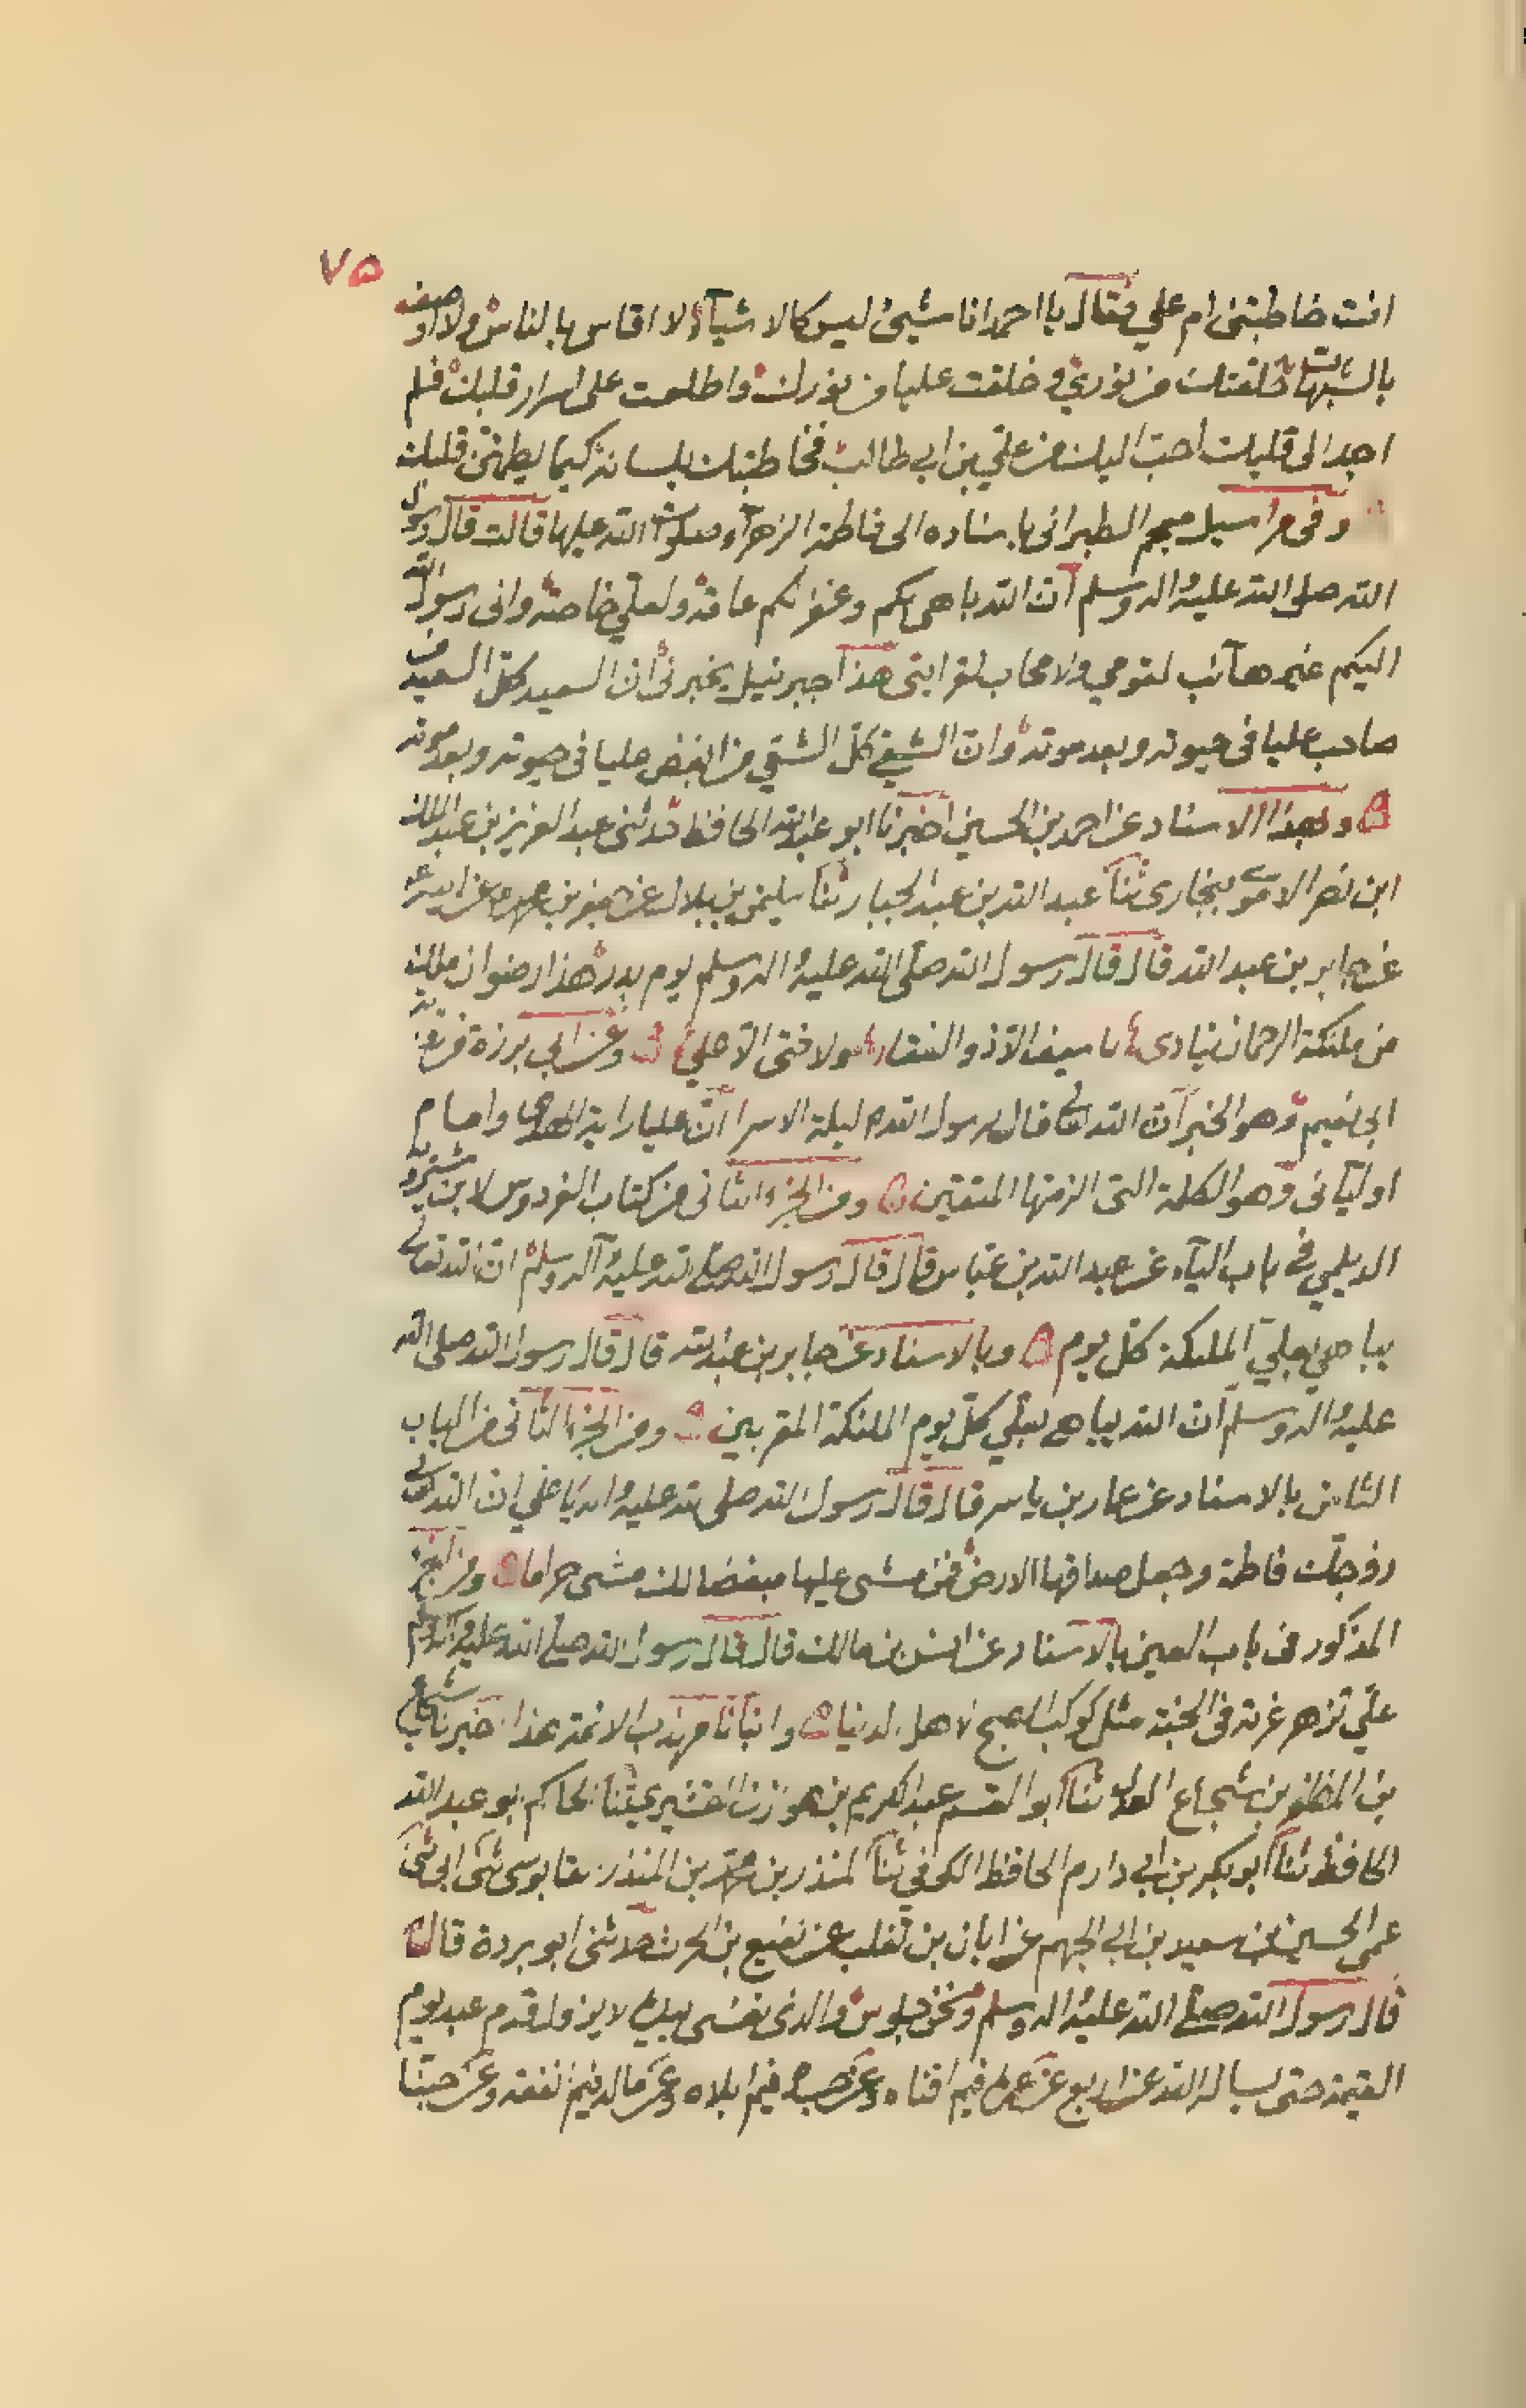 ٧٥
انت خاطبتني ام علي فقال يا احمد انا شيئ ليس كالاشيآء لا اقاس بالناس ولا اوصف
بالشبهات خلقتك من نوري و خلقت عليا من نورك واطلعت على اسرار قلبك فلم
اجد الى قلبك احب اليك من علي بن ابي طالب فخاطبتك بلسانه كيما يطمئن قلبك
وفي مراسيل معجم الطبراني باسناده الى فاطمة الزهرآء صلوات الله عليها قالت قال رسول
الله صلى الله عليه واله وسلم ان الله باهى بكم وغفر لكم عامة ولعلي خاصة واني رسول الله
اليكم غير هآئب لقومي ولا محاب لقرابتي هذا جبرئيل يخبرني ان السعيد كل السعيد من
صاحب عليا في حيوته وبعد موته وان الشقي كل الشقي من ابغض عليا في حيوته وبعد موته
وبهذا الاسناد عن احمد بن الحسين اخبرنا ابو عبد الله الحافظ حدثني عبد العزيز بن عبد الملك
ابن نصر الاموي ببخارى ثنا عبد الله بن عبد الجبار ثنا سليمن بن بلال عن جعفر بن محمد عن ابيه
عن جابر بن عبد الله قال قال رسول الله صلى الله عليه واله وسلم يوم بدر هذا رضوان ملك
من ملئكة الرحمان ينادي لا سيف الا ذو الفقار ولا فتى الا علي وعن ابي برزة من
ابي نعيم وهو الخبر ان الله تعالى قال لرسول الله ص ليلة الاسرا ان عليا راية الهدى وامام
اوليآئي وهو الكلمة التي الزمتها المتقين ومن الجزء الثاني من كتاب الفردوس لابن شيرويه
الديلمي في باب اليآء عن عبد الله بن عباس قال قال رسول الله صلى الله عليه وآله وسلم ان الله تعالى
يباهي بعلي الملئكة كل يوم وبالاسناد عن جابر بن عبد الله قال قال رسول الله صلى الله
عليه واله وسلم ان الله يباهي بعلي كل يوم الملئكة المقربين ومن الجزء الثاني من الباب
الثامن بالاسناد عن عمار بن ياسر قال قال رسول الله صلى الله عليه واله يا علي ان الله تعالى
زوجك فاطمة وجعل صداقها الارض فمن مشى عليها مبغضا لك مشى حراما ومن الجزء
المذكور في باب العين بالاسناد عن انس بن مالك قال قال رسول الله صلى الله عليه وآله وسلم
علي تزهر غرته في الجنة مثل كوكب الصبح لاهل الدنيا وانبأنا مهذب الائمة هذا اخبرنا شجاع
بن المظفر بن شجاع العدل ثنا ابو القسم عبد الكريم بن هوازن القشيري ثنا الحاكم ابو عبد الله
الحافظ ثنا ابو بكر بن ابي دارم الحافظ الكوفي ثنا المنذر بن محمد بن المنذر القابوسي ثنى ابي ثنى
عمي الحسين بن سعيد بن ابي الجهم عن ابان بن تغلب عن نفيع بن الحرث حدثني ابو بردة قال
قال رسول الله صلى الله عليه واله وسلم ونحن جلوس والذي نفسي بيده لا يزول قدم عبد يوم
القيمة حتى يساله الله عن اربع عن عمره فيم افناه وعن جسده فيم ابلاه وعن ماله فيم انفقه وعن حبنا